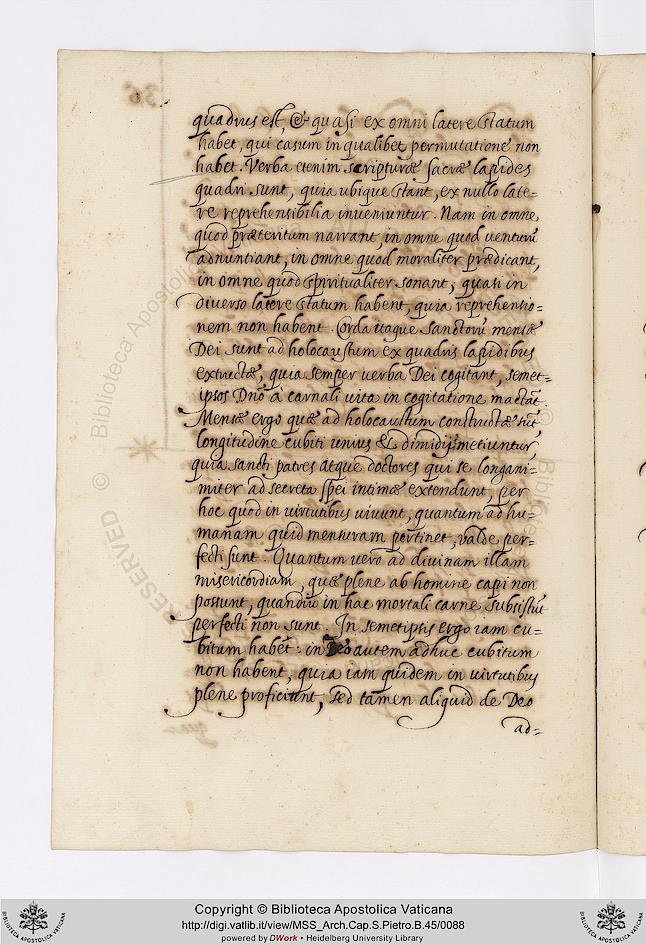 quadrus est, & quasi ex omni latere statum
habet, qui casum in qualibet permutatione non
habet. Verba etenim scripturæ sacræ lapides
quadri sunt, quia ubique stant, ex nullo late=
re reprehensibilia inveniuntur. Nam in omne,
quod præteritum narrant, in omne quod venturū
adnuntiant, in omne quod moraliter prædicant,
in omne quod spiritualiter sonant, quasi in
diverso latere statum habent, quia reprehensio=
nem non habent. Corda itaque sanctorū mensæ
Dei sunt ad holocaustum ex quadris lapidibus
extructæ, quia semper verba Dei cogitant, semet=
ipsos Dnō à carnali vita in cogitatione mactāt.
Mensæ ergo quæ ad holocaustum constructæ sūt,
longitudine cubiti unius & dimidij metiuntur,
quia sancti patres atque doctores qui se longani=
miter ad secreta spei intimæ extendunt, per
hoc quod in virtutibus vivunt, quantum ad hu=
manam quid mensuram pertinet, valde per=
fecti sunt. Quantum vero ad divinam illam
misericordiam, quæ plene ab homine capi non
possunt, quandiu in hac mortali carne subsistūt
perfecti non sunt. In semetipsis ergo iam cu=
bitum habēt: in Deo autem adhuc cubitum
non habent, quia iam quidem in virtutibus
plene proficiunt, sed tamen aliquid de Deo
ad=
Copyright © Biblioteca Apostolica Vaticana
http://digi.vatlib.it/view/MSS_Arch.Cap.S.Pietro.B.45/0088
powered by DWork • Heidelberg University Library
BIBLIOTECA APOSTOLICA VATICANA
BIBLIOTECA APOSTOLICA VATICANA
RESERVED © Biblioteca Apostolica
© Biblioteca